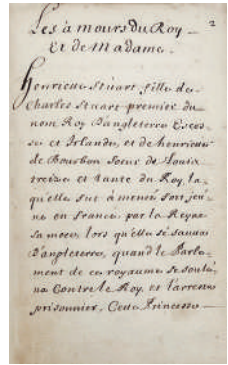 2
Les amours du Roy
Et de Madame.
Henriette Stuart, fille de
Charles Stuart premier du
nom Roy D'angleterre Escos-
se et Irlande, et de henriette
de Bourbon Soeur de Louis
treize et tante du Roy, la
qu'elle fut amenée fort jeu-
ne en france par la Reyne
sa mere, lors qu'elle se sauva
D'angleterre, quand le Parla-
ment de ce royaume se soule-
va Contre le Roy, et l'arresta
prisonnier, Cette Princesse